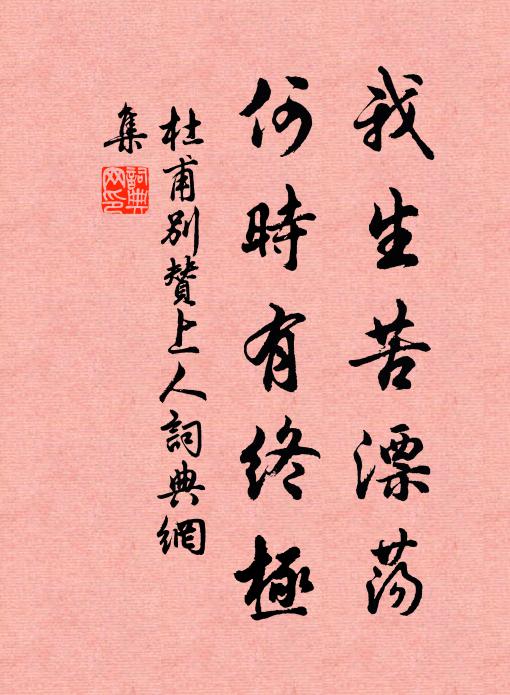 我生苦漂荡
何時有终極
杜甫别贊上人詞典網
集
詞典网印